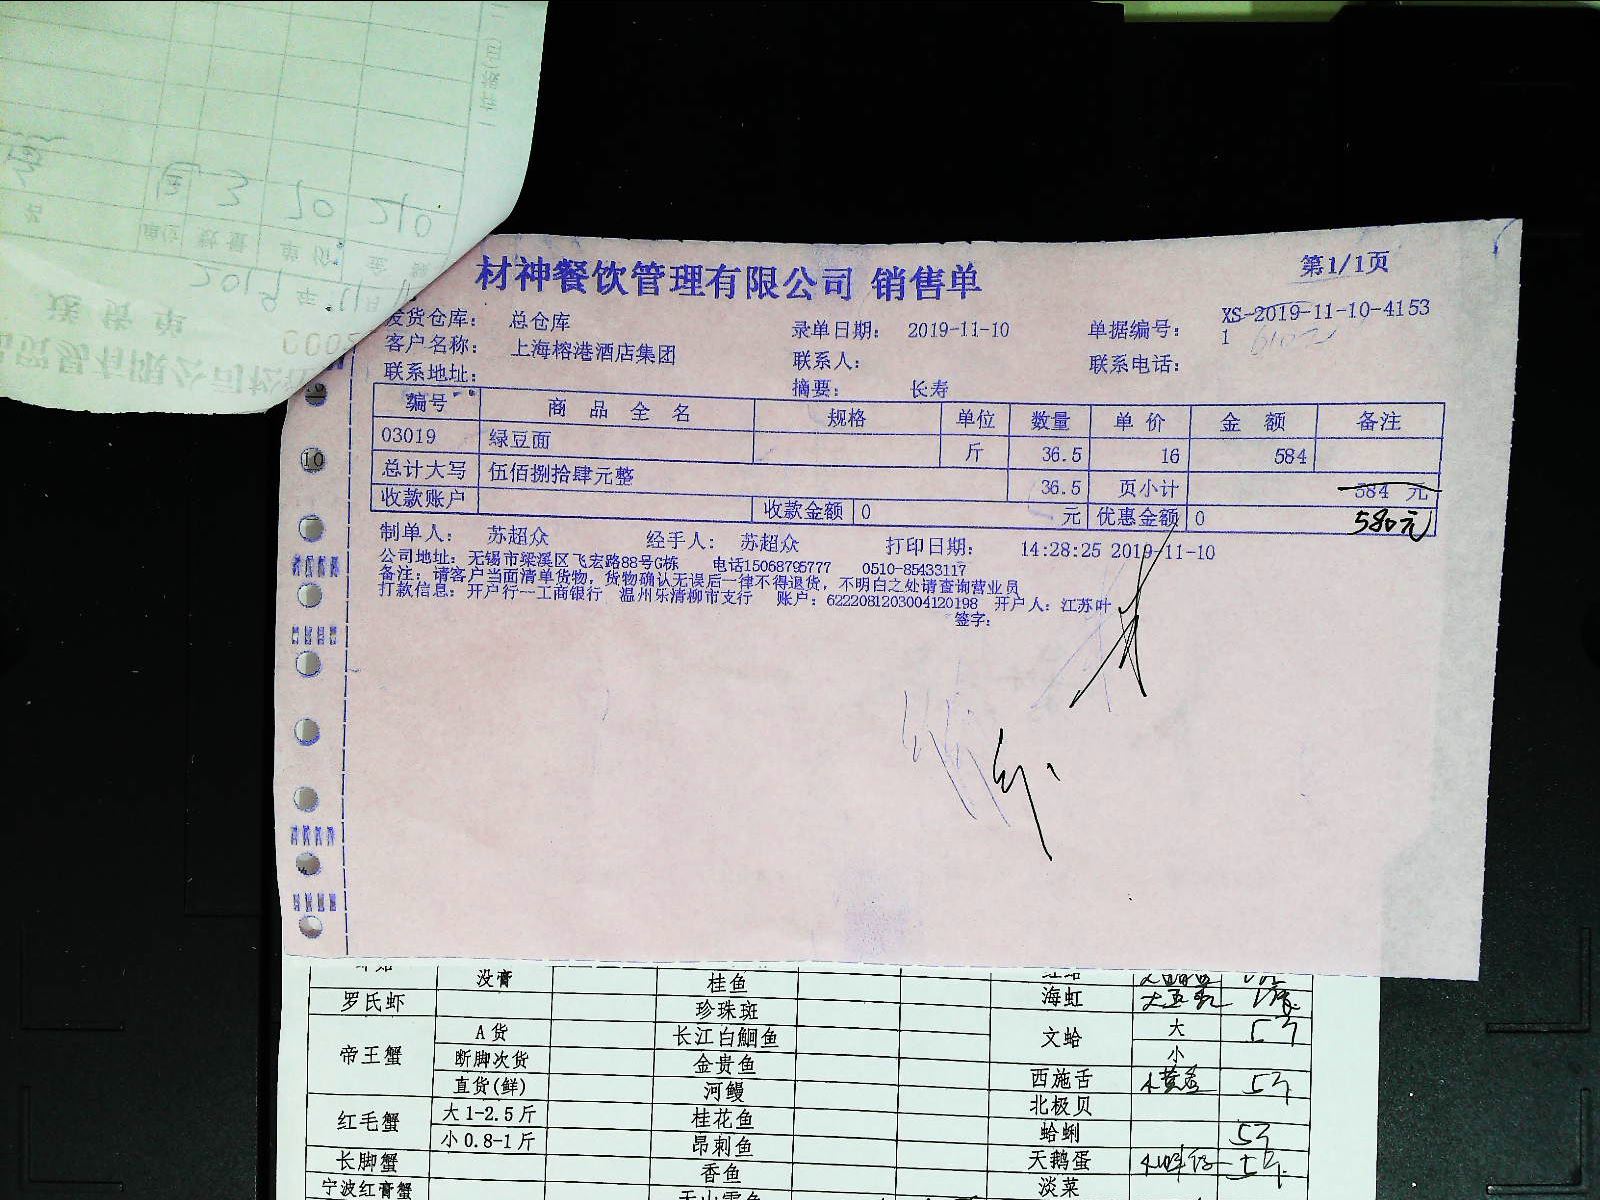 材神餐饮管理有限公司 销售单
第1/1页
发货仓库： 总仓库 录单日期： 2019-11-10 单据编号： XS-2019-11-10-4153
1
客户名称： 上海榕港酒店集团 联系人： 联系电话：
联系地址： 摘要： 长寿
编号 商品全名 规格 单位 数量 单价 金额 备注
03019 绿豆面 斤 36.5 16 584
总计大写 伍佰捌拾肆元整 36.5 页小计 584 元
收款账户 收款金额 0 元 优惠金额 0 580元
制单人： 苏超众 经手人： 苏超众 打印日期： 14:28:25 2019-11-10
公司地址：无锡市梁溪区飞宏路88号G栋 电话15068795777 0510-85433117
备注：请客户当面清单货物，货物确认无误后一律不得退货，不明白之处请查询营业员
打款信息：开户行一工商银行 温州乐清柳市支行 账户：6222081203004120198 开户人：江苏叶
签字：
没膏 桂鱼
罗氏虾 珍珠斑 海虹
帝王蟹 A货 长江白鮰鱼 文蛤 大
断脚次货 金贵鱼 小
直货(鲜) 河鳗 西施舌
红毛蟹 大1-2.5斤 桂花鱼 北极贝
小0.8-1斤 昂刺鱼 蛤蜊
长脚蟹 香鱼 天鹅蛋
宁波红膏蟹 淡菜